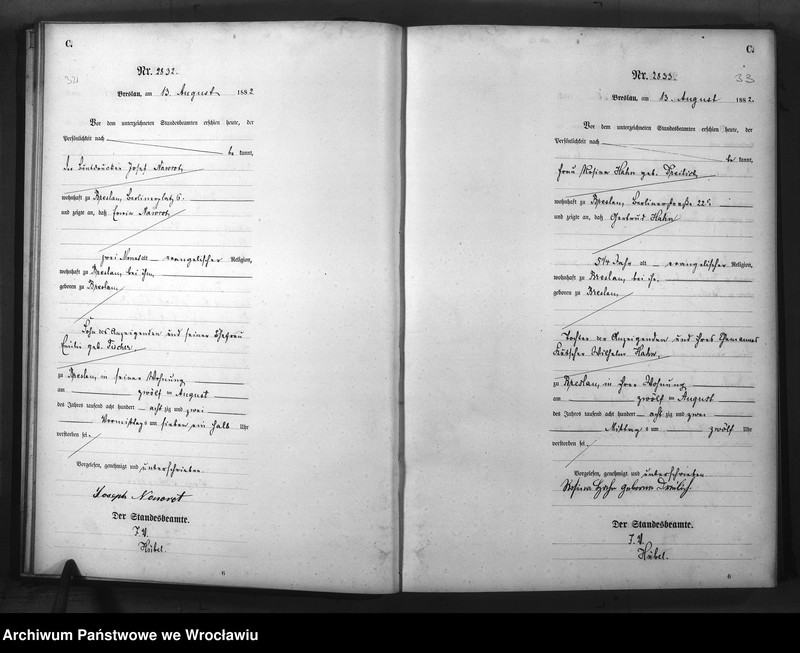 C.
321
Nr. 2832.
Breslau, am 13. August 1882.
Vor dem unterzeichneten Standesbeamten erschien heute, der
Persönlichkeit nach
be kannt,
der Steindrucker Josef Nawrot
wohnhaft zu Breslau, Berlinerplatz 6.
und zeigte an, daß Erwin Nawrot
zwei Monat alt evangelischer Religion,
wohnhaft zu Breslau bei ihm,
geboren zu Breslau,
Sohn des Anzeigenden und seiner Ehefrau
Emilie geb. Fischer
zu Breslau, in seiner Wohnung
am zwölf ten August
des Jahres tausend acht hundert acht zig und zwei
Vormittags um sieben ein halb Uhr
verstorben sei.
Vorgelesen, genehmigt und unterschrieben
Joseph Nawrot
Der Standesbeamte.
J. V.
Hübel.
6
C.
33
Nr. 2833.
Breslau, am 13. August 1882.
Vor dem unterzeichneten Standesbeamten erschien heute, der
Persönlichkeit nach
be kannt,
Frau Rosina Hahn geb.
wohnhaft zu Breslau, Berlinerstraße 22
und zeigte an, daß Gertrud Hahn
5 1/4 Jahr alt evangelischer Religion,
wohnhaft zu Breslau bei ihr,
geboren zu Breslau,
Tochter der Anzeigenden und ihres Ehemannes
Kutscher Wilhelm Hahn.
zu Breslau, in ihrer Wohnung
am zwölf ten August
des Jahres tausend acht hundert acht zig und zwei
Mittag s um zwölf Uhr
verstorben sei.
Vorgelesen, genehmigt und unterschrieben
Rosina Hahn geborne
Der Standesbeamte.
J. V.
Hübel.
6
Archiwum Państwowe we Wrocławiu